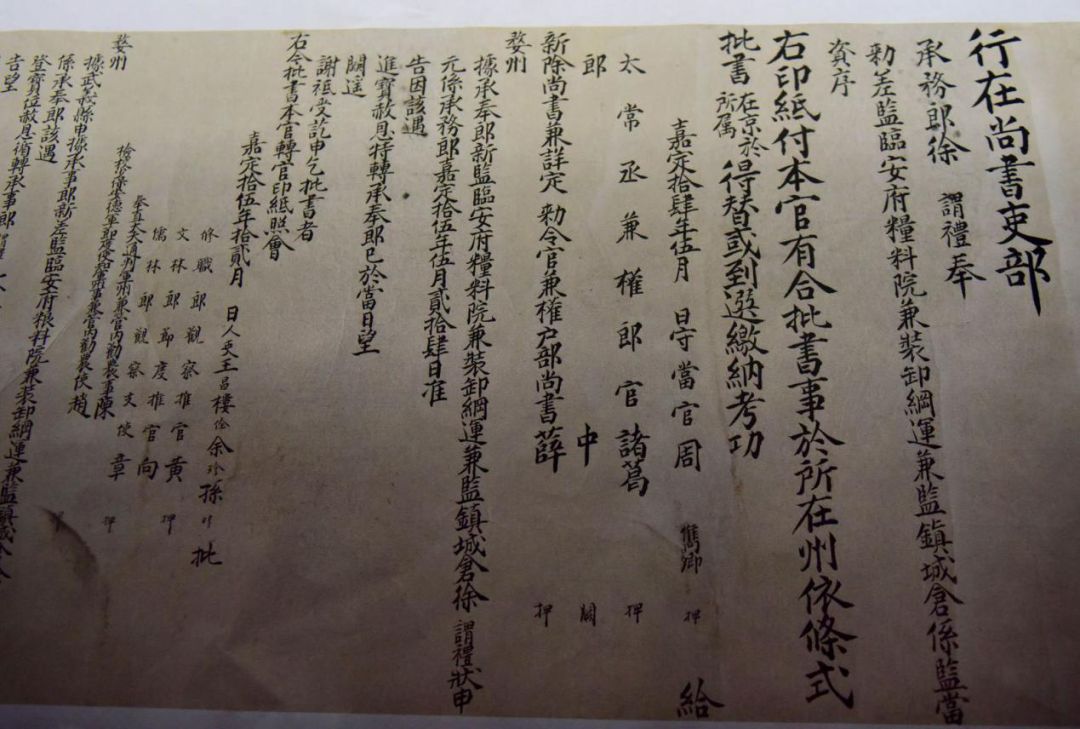 行在尚書吏部
承務郎徐 謂禮奉
勅差監臨安府糧料院兼裝卸綱運兼監鎮城倉係監當
資序
右印紙付本官有合批書事於所在州依條式
批書 在京於所属 得替或到選繳納考功
嘉定拾肆年伍月 日守當官周 雋卿 押 給
太常丞兼權郎官諸葛 押
郎 中 闕
新除尚書兼詳定 勅令官兼權户部尚書薛 押
婺州
據承奉郎新監臨安府糧料院兼裝卸綱運兼監鎮城倉徐 謂禮狀申
元係承務郎嘉定拾伍年伍月貳拾肆日准
告因該遇
進寳赦恩特轉承奉郎已於當日望
闕遥
謝祗受訖申乞批書者
右今批書本官轉官印紙照會
嘉定拾伍年拾貳月 日人吏王 樓 余 孫 批
修職郎觀察推官黄 押
文林郎節度推官向
儒林郎觀察支使章 押
奉直大夫通判軍州兼管内勸農事陳
兼管内勸農使趙 押
婺州
據武義縣申據承事郎新差監臨安府粮料院兼裝卸綱運兼監鎮城倉
係承奉郎該遇
登寳位赦恩循轉承事郎
告望